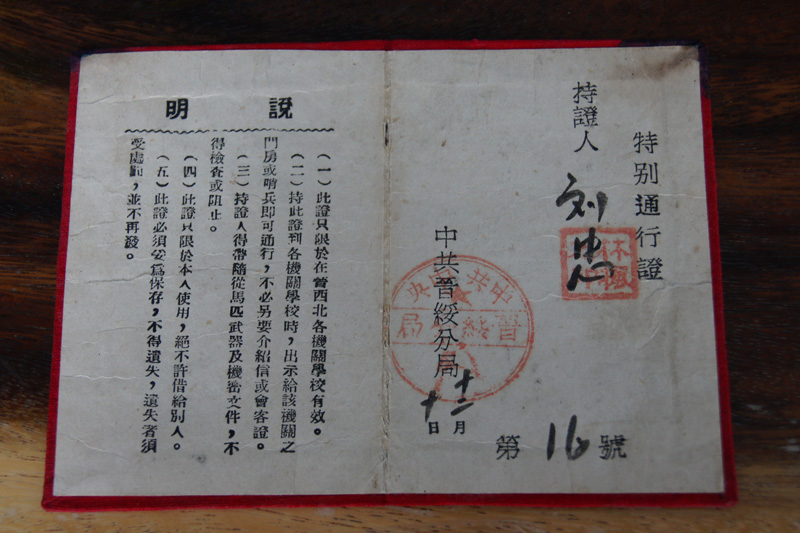 特别通行證
持證人 刘忠
中共晋綏分局
十二月
十日
第16號
中共中央
晋綏分局
說明
（一）此證只限於在晋西北各機關學校有效。
（二）持此證到各機關學校時，出示給該機關之
門房或哨兵即可通行，不必另要介紹信或會客證。
（三）持證人得帶隨從馬匹武器及機密文件，不
得檢查或阻止。
（四）此證只限於本人使用，絕不許借給别人。
（五）此證必須妥為保存，不得遺失，遺失者須
受處罰，並不再發。